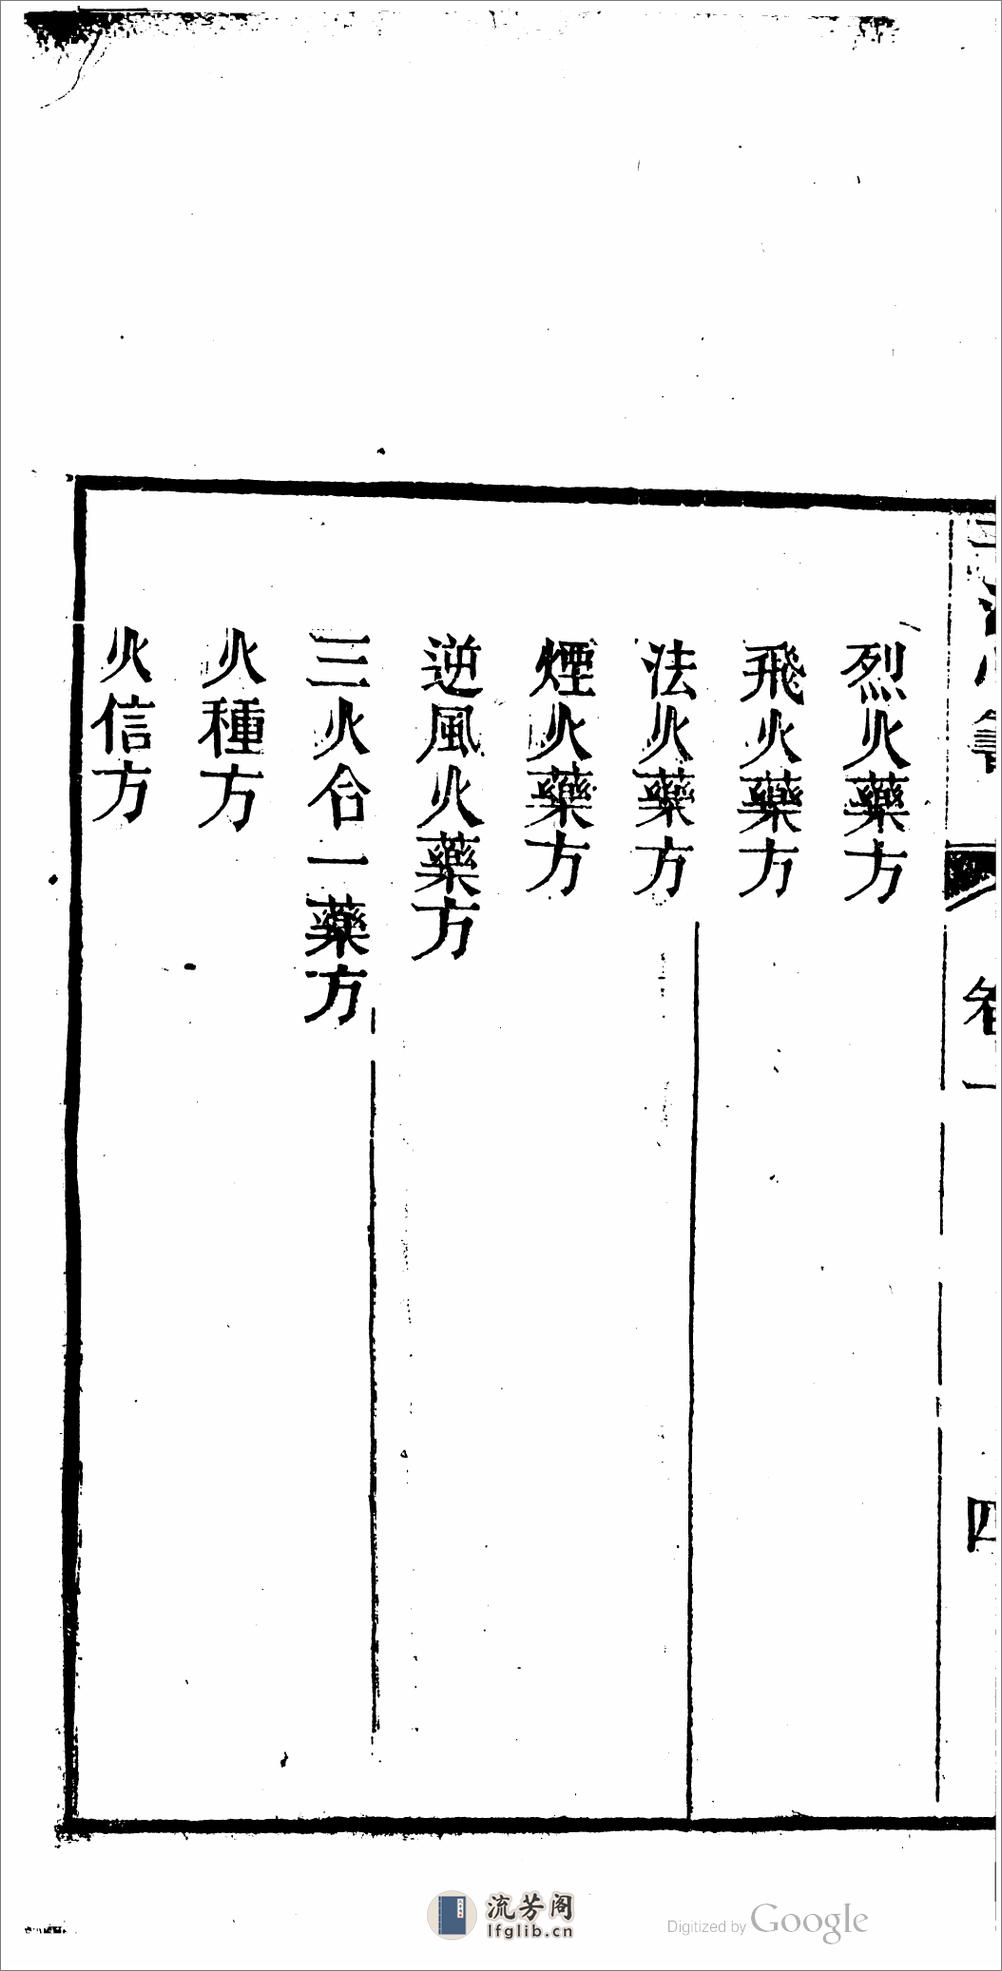 烈火藥方
飛火藥方
法火藥方
煙火藥方
逆風火藥方
三火合一藥方
火種方
火信方
卷一
四
流芳阁
lfglib.cn
Digitized by Google